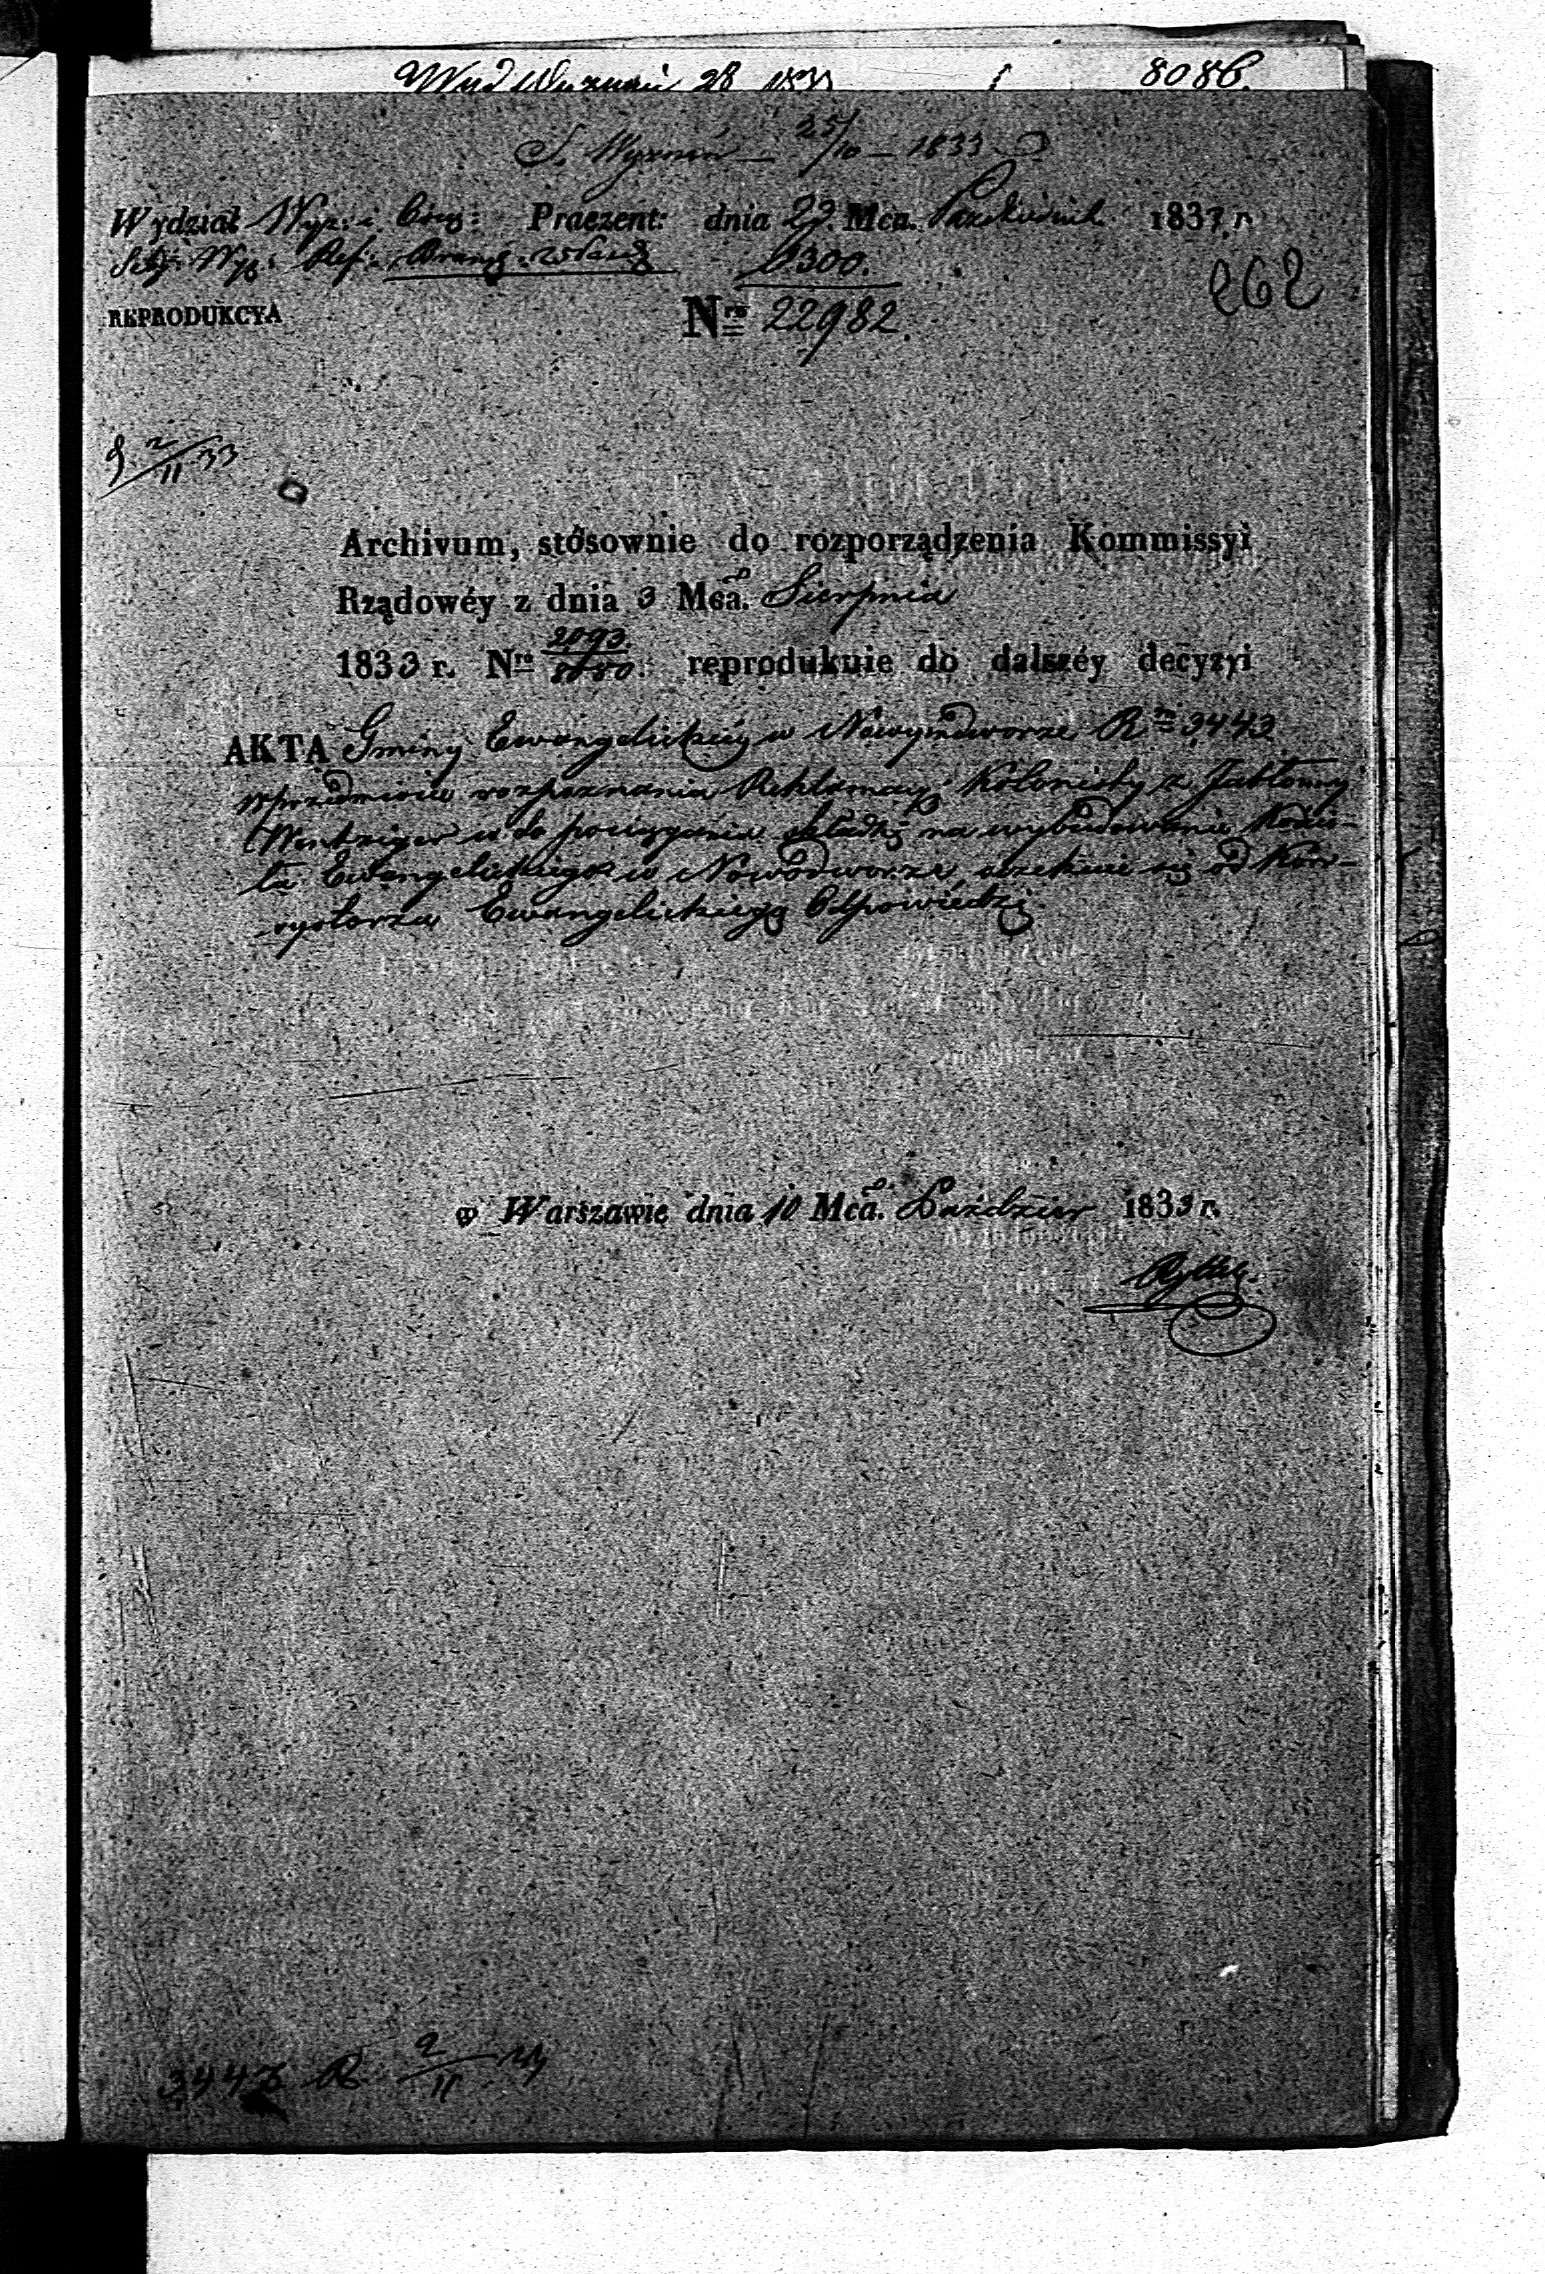 8086.
S. Wyznań 25/10 – 1833
Wydział Wyz: i Praezent: dnia 29. Mca. Październik 1833 r.
Sek: Wyz: Ref:
6300.
262
REPRODUKCYA Nro 22982.
2/11 33
Archivum, stósownie do rozporządzenia Kommissyi
Rządowéy z dnia 3 Mca. Sierpnia
1833 r. Nro 2093 reprodukuie do dalszéy decyzyi
AKTA Gminy Ewangelickiey w Nowymdworze R 3443
w przedmiocie rozpoznania Reklamacyi Kolonisty z Jabłonny
do pociągania składki na wybudowanie Kościo-
ła Ewangelickiego w Nowodworze, oczekuie się od Kon-
systorza Ewangelickiego Odpowiedzi.
w Warszawie dnia 10 Mca. Paździer 1833 r.
3443 R. 2/11